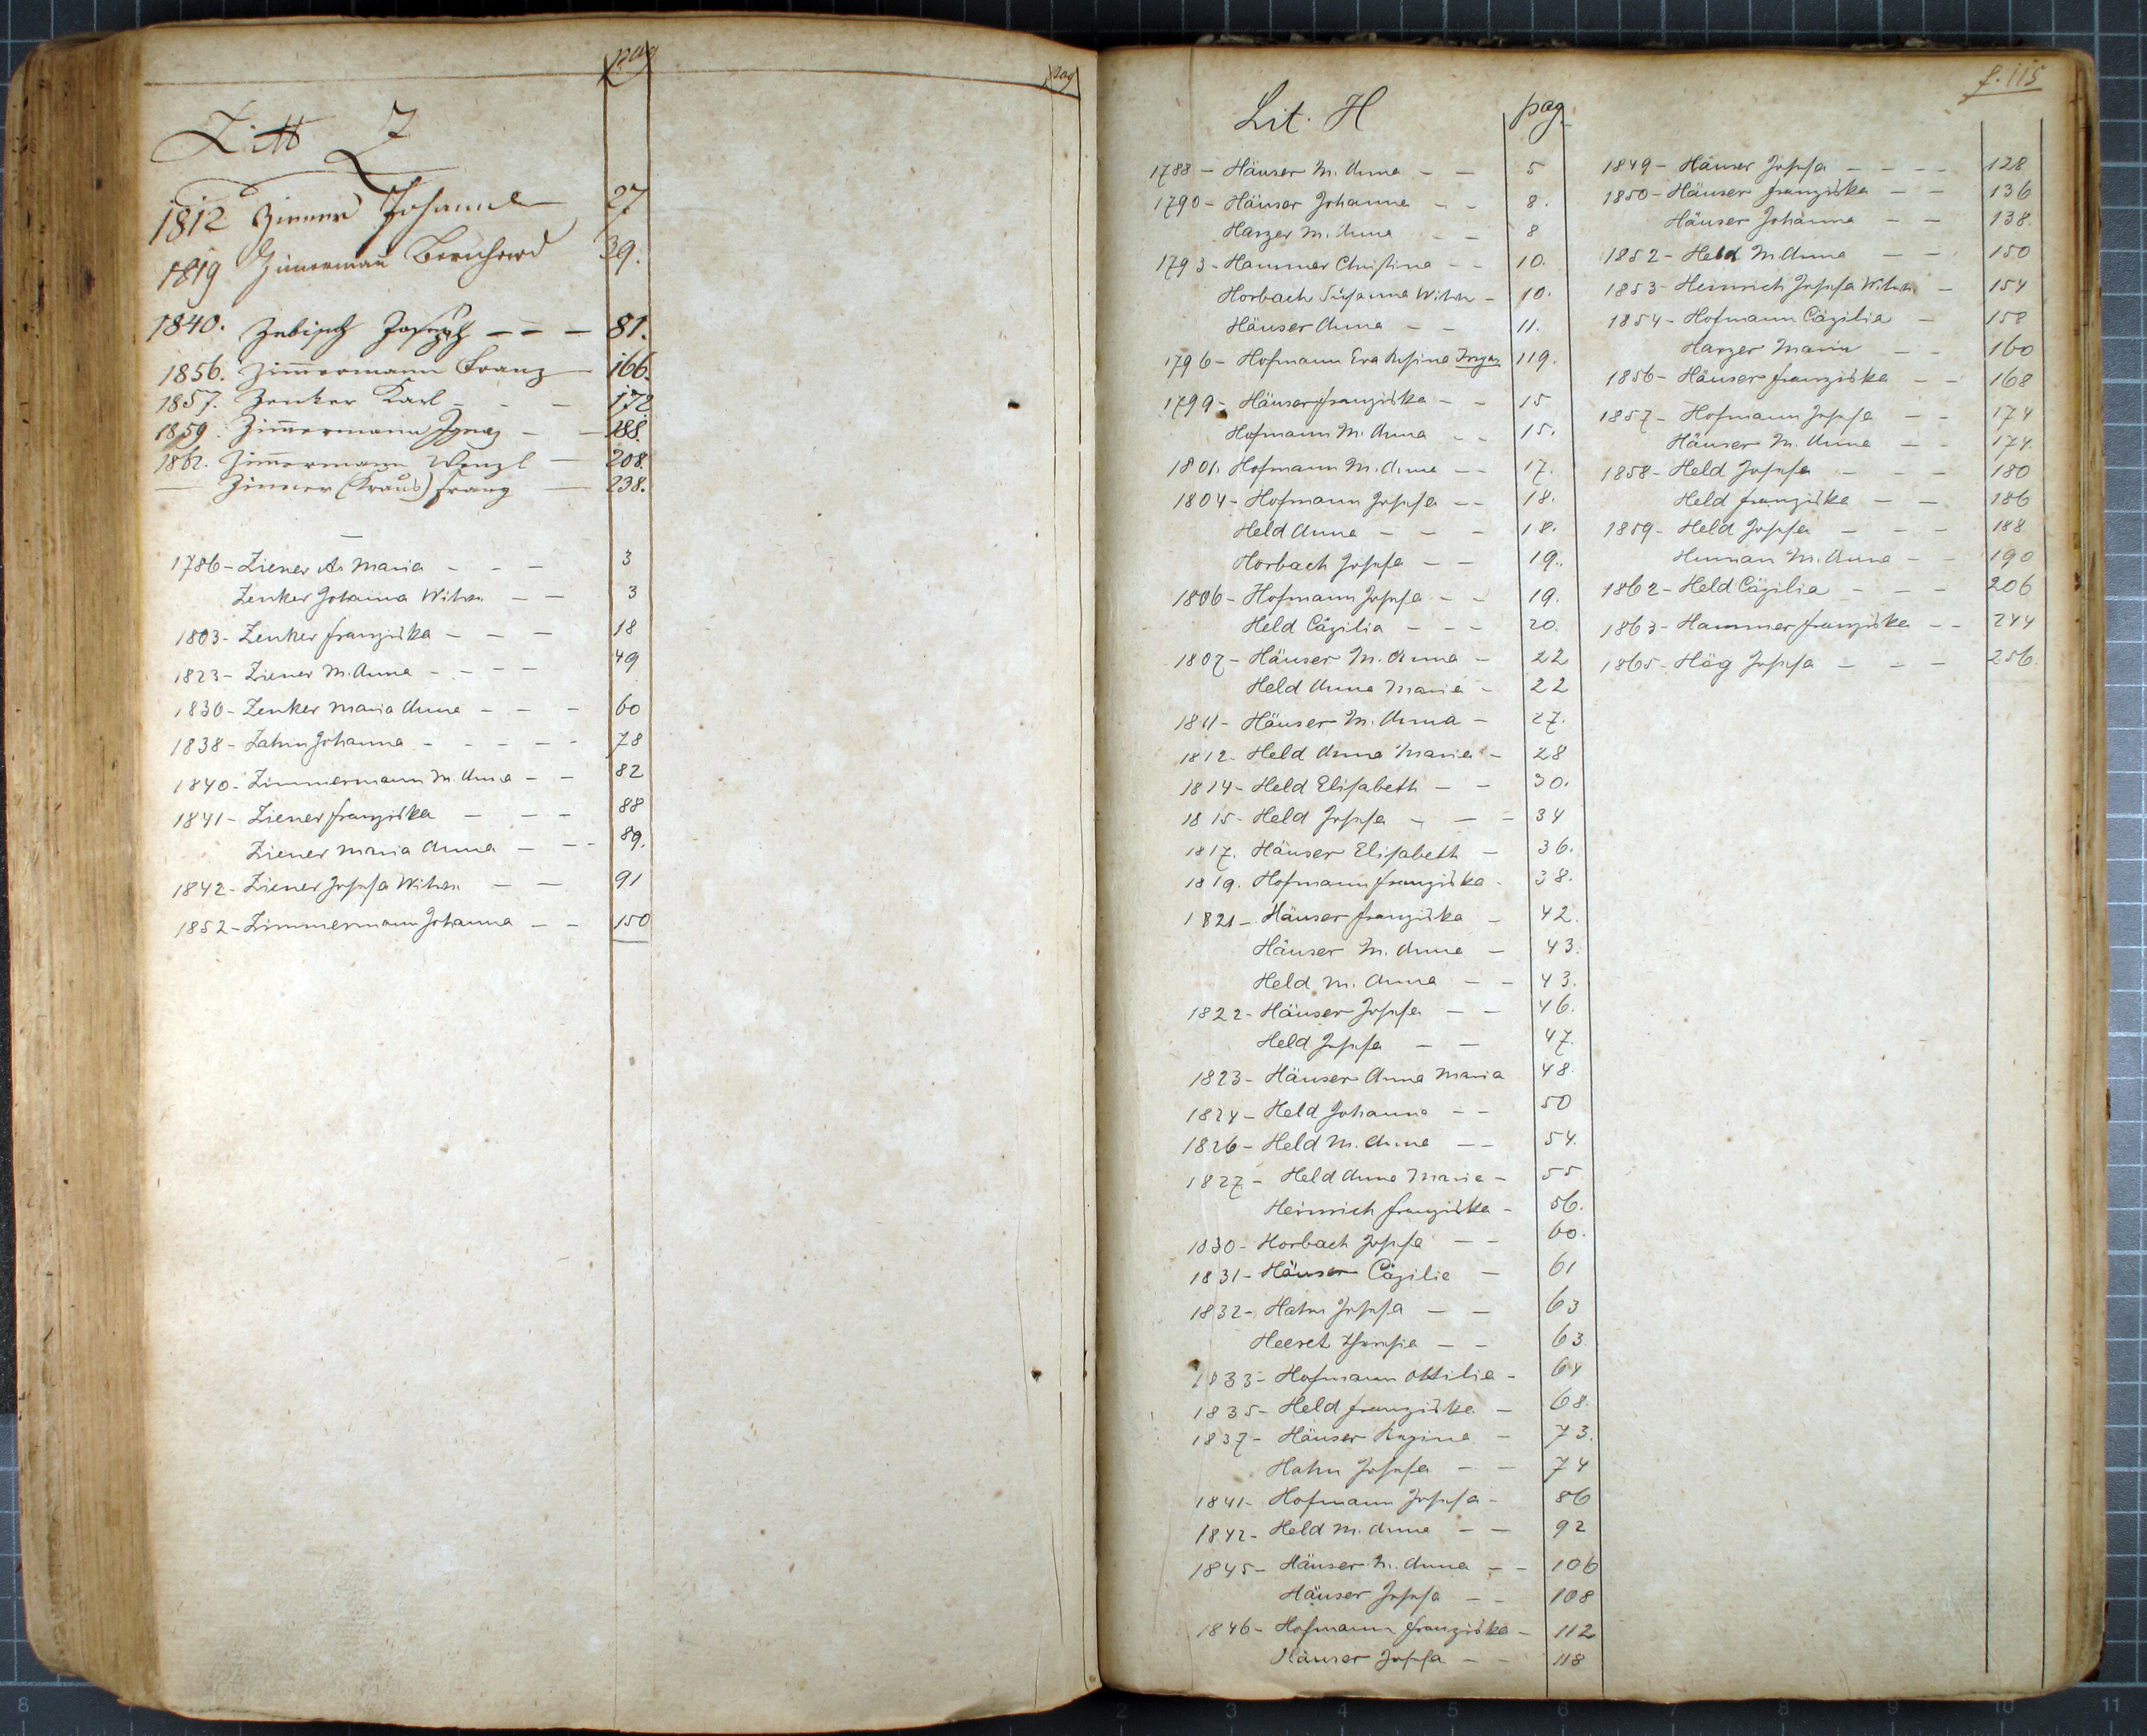 pag
pag
Litt Z
1812 Zinner Johann 27
1819 Zimerman Bernhard 39.
1840. Zebisch Joseph - - - 81.
1856. Zimmermann Franz - 166.
1857. Zenker Karl - - - 172
1859. Zimmermann Ignaz - - 188.
1862. Zimmermann Wenzl - 208.
— Zinner (Kraus) Franz — 238.
1786 - Ziener A. Maria - - - 3
Zenker Johanna Witwe - - 3
1803 - Zenker Franziska - - - 18
1823 - Ziener M. Anna - - - - 49
1830 - Zenker Maria Anna - - - 60
1838 - Zahn Johanna - - - - - 78
1840 - Zimmermann M. Anna - - 82
1841 - Ziener Franziska - - - 88
Ziener Maria Anna - - - 89.
1842 - Ziener Josefa Witwe - - 91
1852 - Zimmermann Johanna - - 150
f. 115
Lit. H pag.
1788 - Häuser M. Anna - - 5
1790 - Häuser Johanna - - 8.
Harzer M. Anna - - 8
1793 - Hammer Christina - - 10.
Horbach Susanna Witwe - 10.
Häuser Anna - - 11.
1796 - Hofmann Eva Rosina 119.
1799 - Häuser Franziska - - 15
Hofmann M. Anna - - 15.
1801. Hofmann M. Anna - - 17.
1804 - Hofmann Josefa - - 18.
Held Anna - - - 18.
Horbach Josefa - - 19.
1806 - Hofmann Josefa - - 19.
Held Cäzilia - - - 20.
1807 - Häuser M. Anna - 22
Held Anna Maria - 22
1811 - Häuser M. Anna - 27.
1812 - Held Anna Maria - 28
1814 - Held Elisabeth - - 30.
1815 - Held Josefa - - - 34
1817. Häuser Elisabeth - 36.
1819. Hofmann Franziska - 38.
1821 - Häuser Franziska - 42.
Häuser M. Anna - 43.
Held M. Anna - - 43.
1822 - Häuser Josefa - - 46.
Held Josefa - - 47.
1823 - Häuser Anna Maria 48.
1824 - Held Johanna - - 50
1826 - Held M. Anna - - 54.
1827 - Held Anna Maria - 55
Heinrich Franziska - 56.
1830 - Horbach Josefa - - 60.
1831 - Häuser Cäzilie - 61
1832 - Hahn Josefa - - 63
Heeret Theresia - - 63
1833 - Hofmann Ottilie - 64
1835 - Held Franziska - 68.
1837 - Häuser Regina - 73.
Hahn Josefa - - 74
1841 - Hofmann Josefa - 86
1842 - Held M. Anna - - 92
1845 - Häuser M. Anna - - 106
Häuser Josefa - - 108
1846 - Hofmann Franziska - 112
Häuser Josefa - - 118
1849 - Häuser Josefa - - - - 128
1850 - Häuser Franziska - - 136
Häuser Johanna - - 138.
1852 - Held M. Anna - - 150
1853 - Heinrich Josefa Witwe - 154
1854 - Hofmann Cäzilia - 158
Harzer Maria - - 160
1856 - Häuser Franziska - - 168
1857 - Hofmann Josefa - - 174
Häuser M. Anna - - 174.
1858 - Held Josefa - - - 180
Held Franziska - - 186
1859 - Held Josefa - - - 188
Human M. Anna - - 190
1862 - Held Cäzilia - - - 206
1863 - Hammer Franziska - - 244
1865 - Hög Josefa - - - 256.